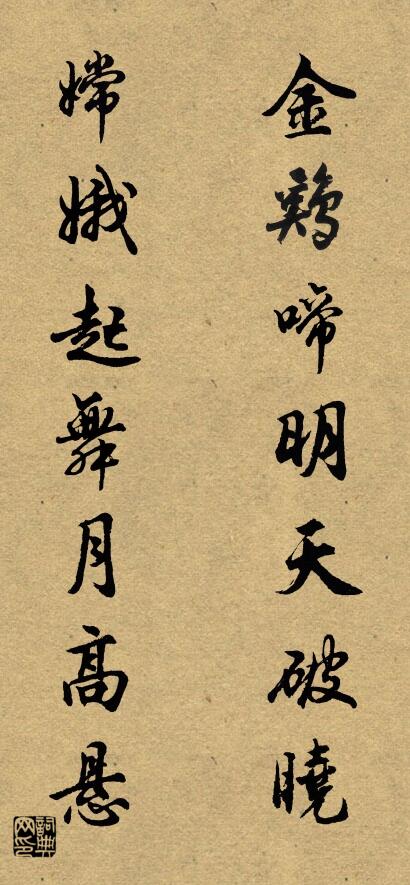 金鷄啼明天破曉
嫦娥起舞月高懸
詞典网印